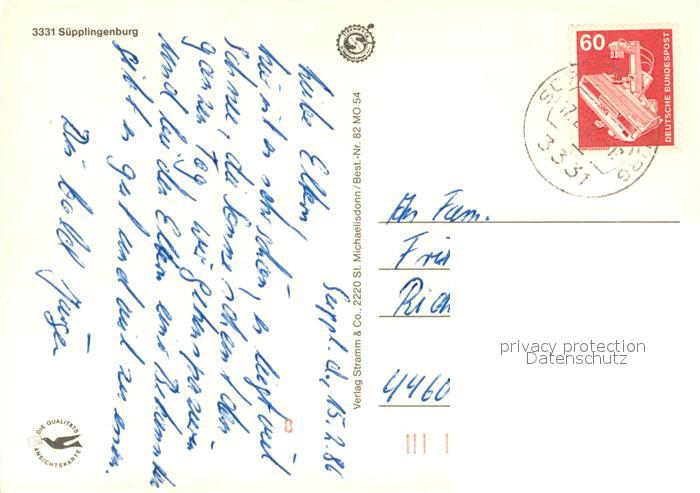 3331 Süpplingenburg
60
DEUTSCHE BUNDESPOST
3331
Süppl. d., 15.2.86
Liebe Eltern,
hier ist es sehr schön, es liegt viel
Schnee, die Sonne scheint den
ganzen Tag wir gehen spazieren
und bei den Eltern und Bekannten
gibt es gut und viel zu essen.
Bis bald
Verlag Stramm & Co., 2220 St. Michaelisdonn/Best.-Nr. 82 MO 54
An Fam.
Fri
Rich
4460
privacy protection
Datenschutz
DIE QUALITÄTS
ANSICHTSKARTE